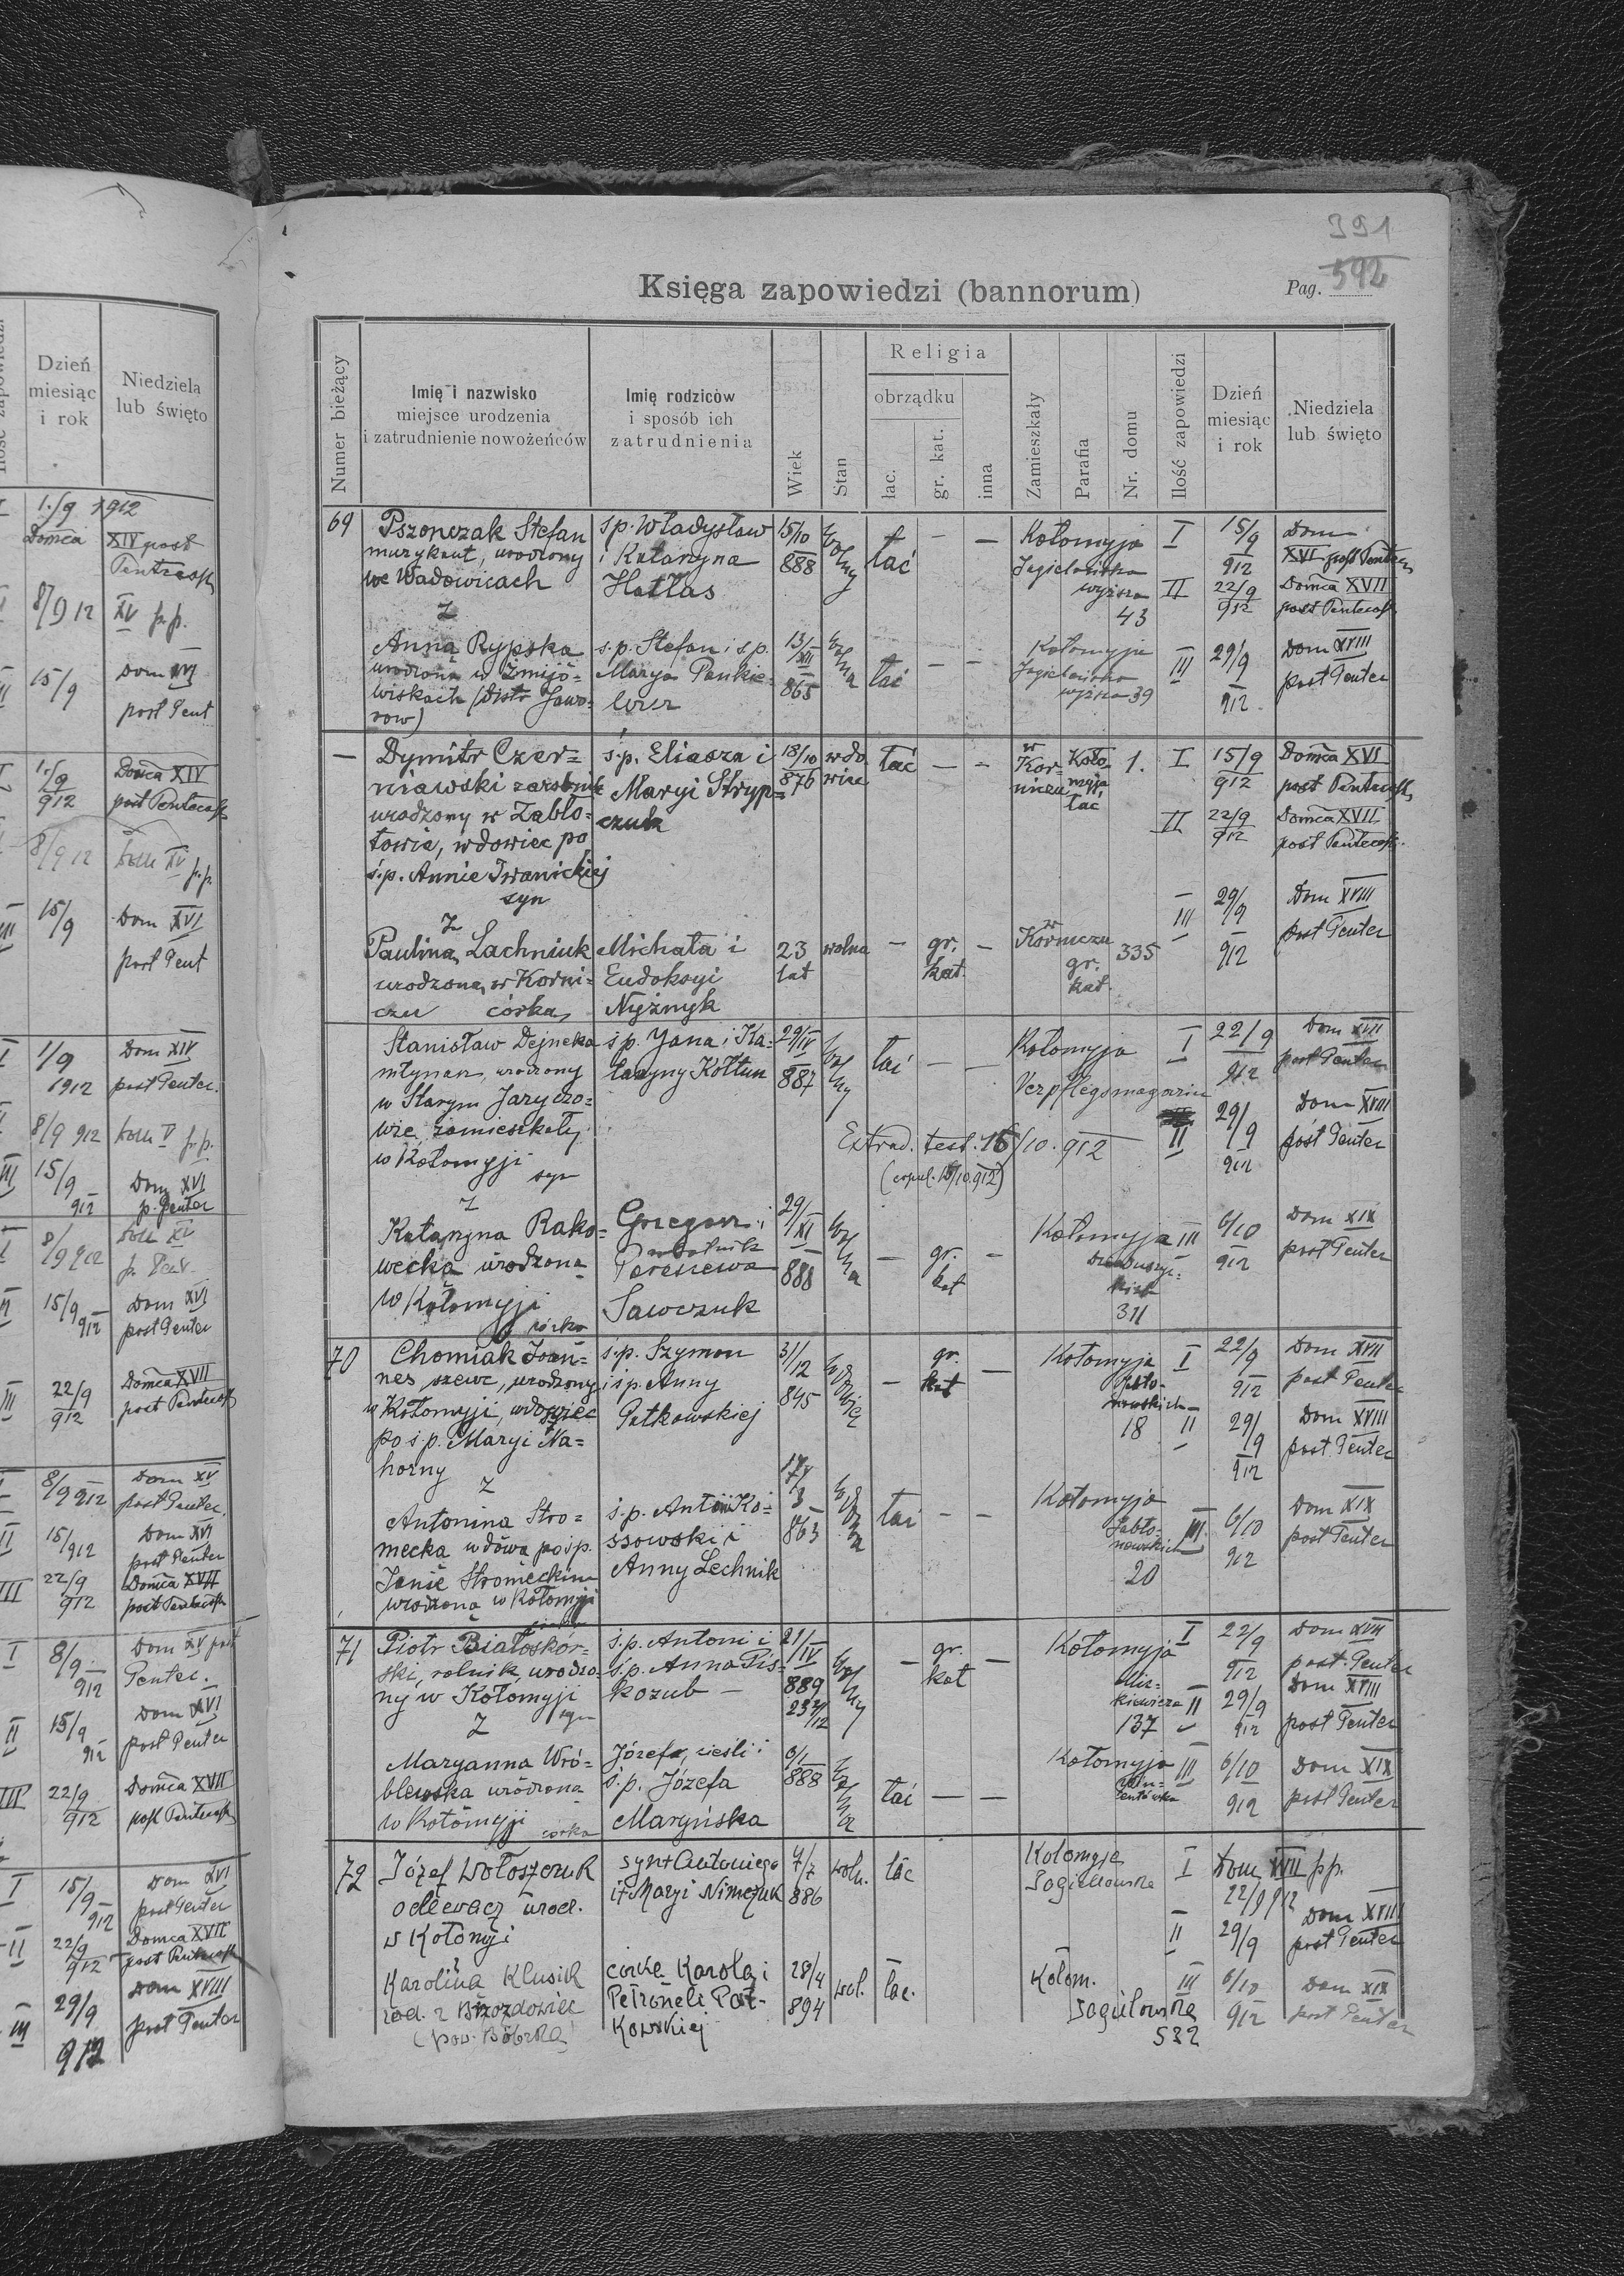 Dzień
miesiąc
i rok
Niedziela
lub święto
1./9 1912
Domca XIV post
Pentecost
8/9 12 XV p.p.
15/9 Dom XVI
post Pent
1./9 912 Domca XIV
post Pentecost
8/9 12 XV p.p.
III 15/9 Dom XVI
post Pent
I 1/9 1912 Dom XIV
post Pentec.
8/9 912 p.p.
III 15/9 912 Dom XVI
p. Pentec
8/9 912 XV
II 15/9 912 Dom XVI
post Pentec
III 22/9 912 Domca XVII
post Pentecost
8/9 912 Dom XV
post Pentec.
II 15/912 Dom XVI
post Pentec
III 22/9 912 Domca XVII
post Pentecost
I 8/9 912 Dom XV post
Pentec.
II 15/9 912 Dom XVI
post Pentec
III 22/9 912 Domca XVII
post Pentecost
I 15/9 912 Dom XVI
post Pentec
II 22/9 912 Domca XVII
post Pentecost
III 29/9 912 Dom XVIII
post Pentec
391
Księga zapowiedzi (bannorum)
Pag. 592
Numer bieżący
Imię i nazwisko
miejsce urodzenia
i zatrudnienie nowożeńców
Imię rodziców
i sposób ich
zatrudnienia
Wiek
Stan
Religia
obrządku
łac.
gr. kat.
inna
Zamieszkały
Parafia
Nr. domu
Ilość zapowiedzi
Dzień
miesiąc
i rok
Niedziela
lub święto
69 Pszonczak Stefan ś.p. Władysław 15/10 888 wolny łać — — Kołomyja I 15/9 912 Dom
murykant, urodzony i Katarzyna Jagielońska XVI post Pentec
we Wadowicach Hatłas wyższa 43 II 22/9 912 Domca XVII
post Pentecost
z
Anną Rypska ś.p. Stefan i ś.p. 13/XII 865 wolna łać — — Kołomyja III 29/9 912 Dom XVIII
urodzona w Żmijo= Marya Pankie= Jagielońska post Pentec
wiskach (distr Jawo= wicz wyższa 39
row)
— Dymitr Czer= ś.p. Eliasza i 18/10 876 wdo łać — — w Kor= Koło 1. I 15/9 912 Domca XVI
niawski zarobnik Maryi Stryp= wiec niczu myja łac post Pentecost
urodzony w Zabło= czuk II 22/9 912 Domca XVII
towie, wdowiec po post Pentecost.
ś.p. Annie Iwanickiej
syn
III 29/9 912 Dom XVIII
post Pentec
z
Paulina Lachniuk Michała i 23 lat wolna — gr. kat. — w Korniczu gr. kat. 335
urodzona w Korni= Eudoksyi
czu córka Nyżnyk
Stanisław Dejneka ś.p. Jana i Ka= 29/IV 887 wolny łać — — Kołomyja I 22/9 912 Dom XVII
młynarz, urodzony tarzyny Kołtun Verpflegsmagazin post Pentec
w Starym Jaryczo=
wie zamieszkały Extrad. test. 16/10. 912 II 29/9 912 Dom XVIII
w Kołomyji (copul. 10/912) post Pentec
syn
z
Katarzyna Rako= Grzegorz i 29/XI 888 wolna — gr. kat — Kołomyja III 6/10 912 Dom XIX
wecka urodzona Paresiewa post Pentec
w Kołomyji Sawczuk 311
córka
70 Chomiak Joan= ś.p. Szymon 31/12 845 wdowiec — gr. kat — Kołomyja I 22/9 912 Dom XVII
nes szewc, urodzony i ś.p. Anny post Pentec
w Kołomyji, wdowiec Patkowskiej 18 II 29/9 912 Dom XVIII
po ś.p. Maryi Na= post Pentec
horny
z
Antonina Stro= ś.p. Antoni Ko= 863 wdowa łać — — Kołomyja III 6/10 912 Dom XIX
mecka wdowa po ś.p. ssowski i Jabło= nowskich 20 post Pentec
Janie Stromeckim Anny Lechnik
urodzona w Kołomyji
71 Piotr Białoskór= ś.p. Antoni i 21/IV 889 wolny — gr. kat — Kołomyja I 22/9 912 Dom XVII
ski, rolnik, urodzo= ś.p. Anna Pis= Mic= post Pentec
ny w Kołomyji kozub — kiewicza 137 II 29/9 912 Dom XVIII
syn post Pentec
z
Maryanna Wró= Józefa, cieśli i 6/1 888 wolna łać — — Kołomyja III 6/10 912 Dom XIX
blewska urodzona ś.p. Józefa post Pentec
w Kołomyji córka Maryńska
72 Józef Wołoszczuk syn + Antoniego 7/7 886 woln. łac Kołomyja I Dom XVII p.p.
odlewacz urod. i + Maryi Nimczuk Jagiellońska 22/9 912
w Kołomyi II 29/9 Dom XVIII
post Pentec
Karolina Klusik córka Karola i 28/4 894 wol. łac. Kołom. III 6/10 912 Dom XIX
rod. z Brzozdowiec Petroneli Pat= Jagielowska post Pentec
(pow. Bóbrka) kowskiej 532